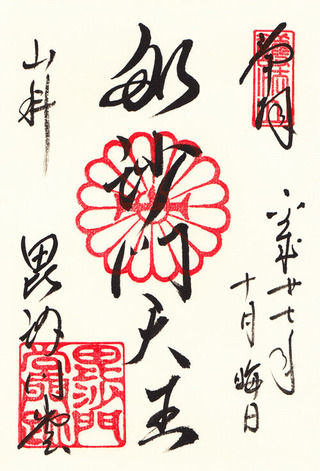 奉拝
平成廿七年
十月晦日
毘沙門天王
山科
毘沙門堂
毘沙門